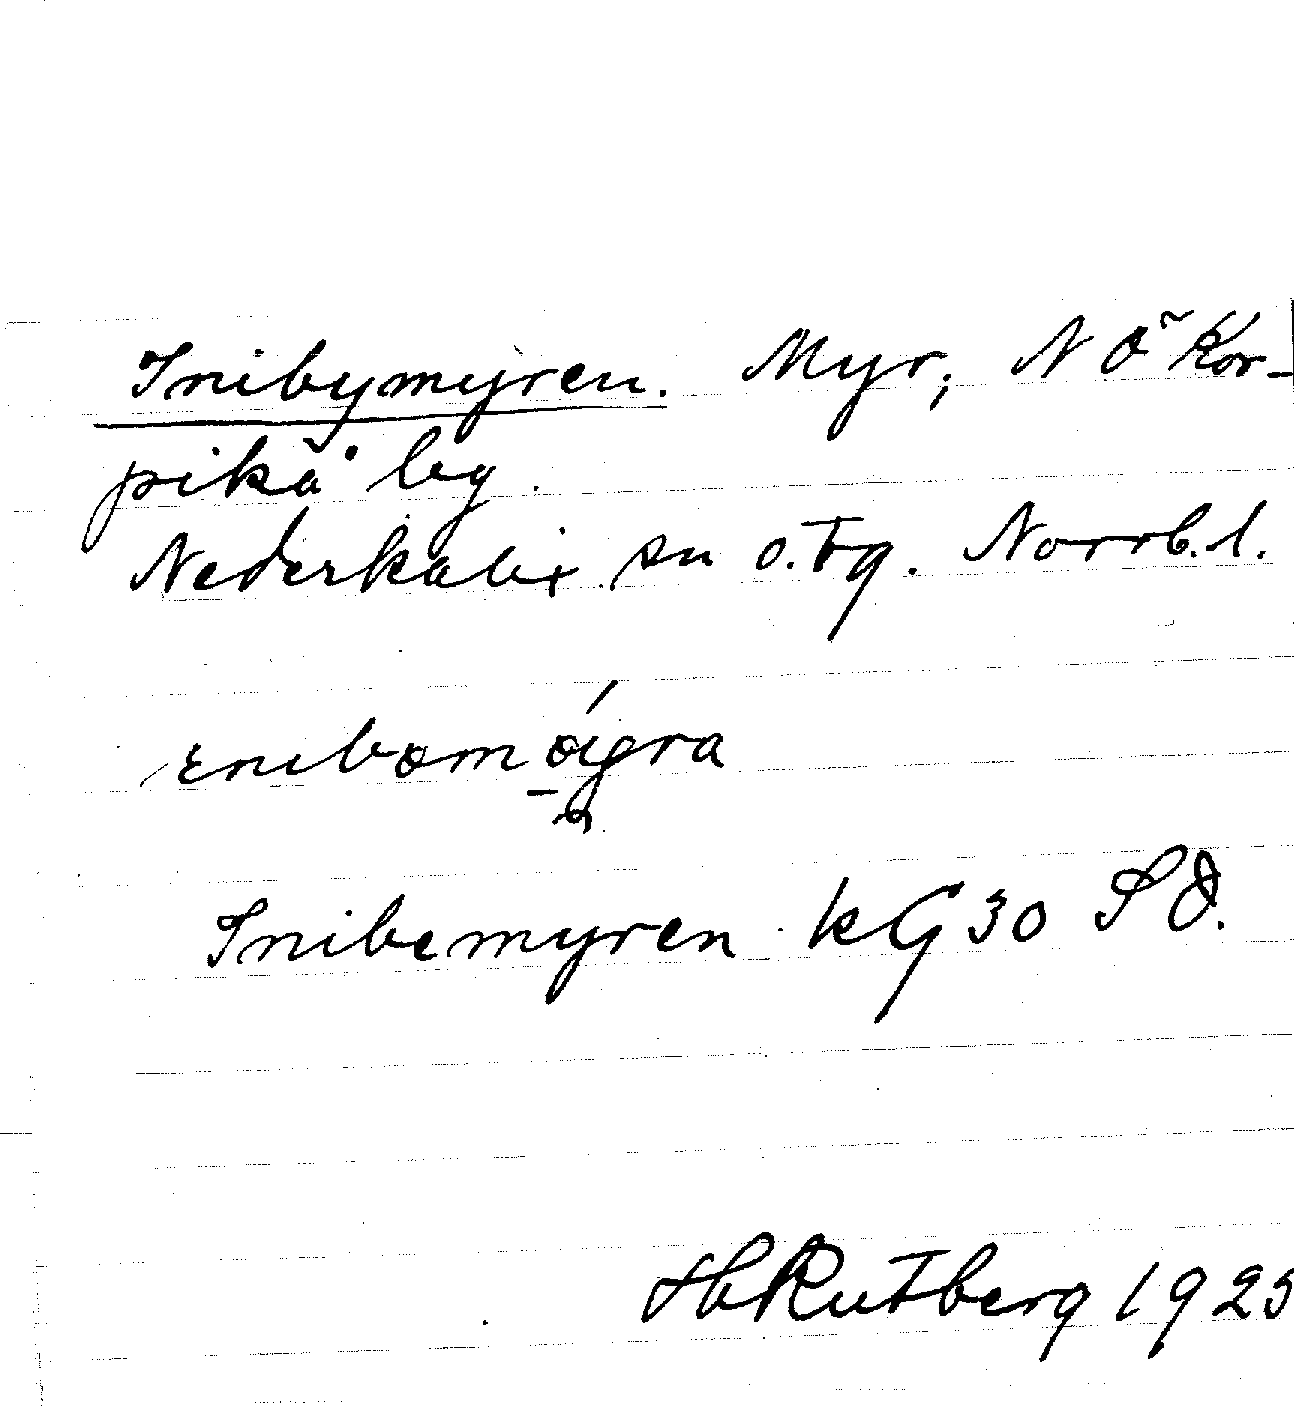 Inibymyren. Myr, NÖ Kor-
pikå by.
Nederkalix sn o.tg. Norrb.l.
Inibemyren kG30 SO.
H Rutberg 1925